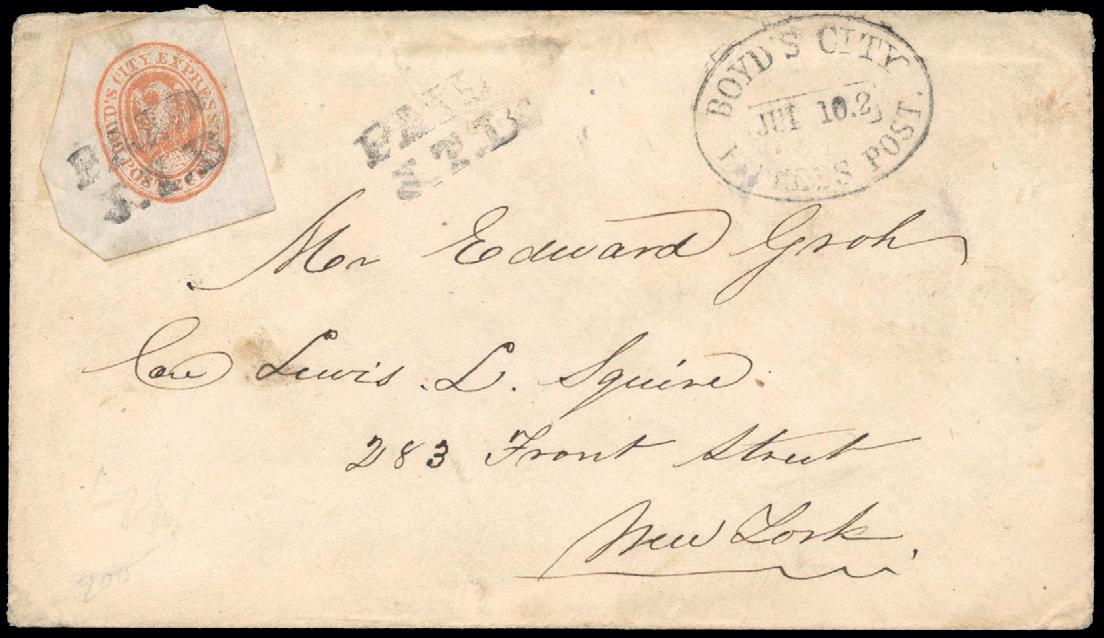 BOYD'S CITY EXPRESS
POST
PAID
J.T.B.
BOYD'S CITY
10.2
EXPRESS POST.
Mr Edward Groh
Care Lewis. L. Squire
283 Front Street
New York.
200